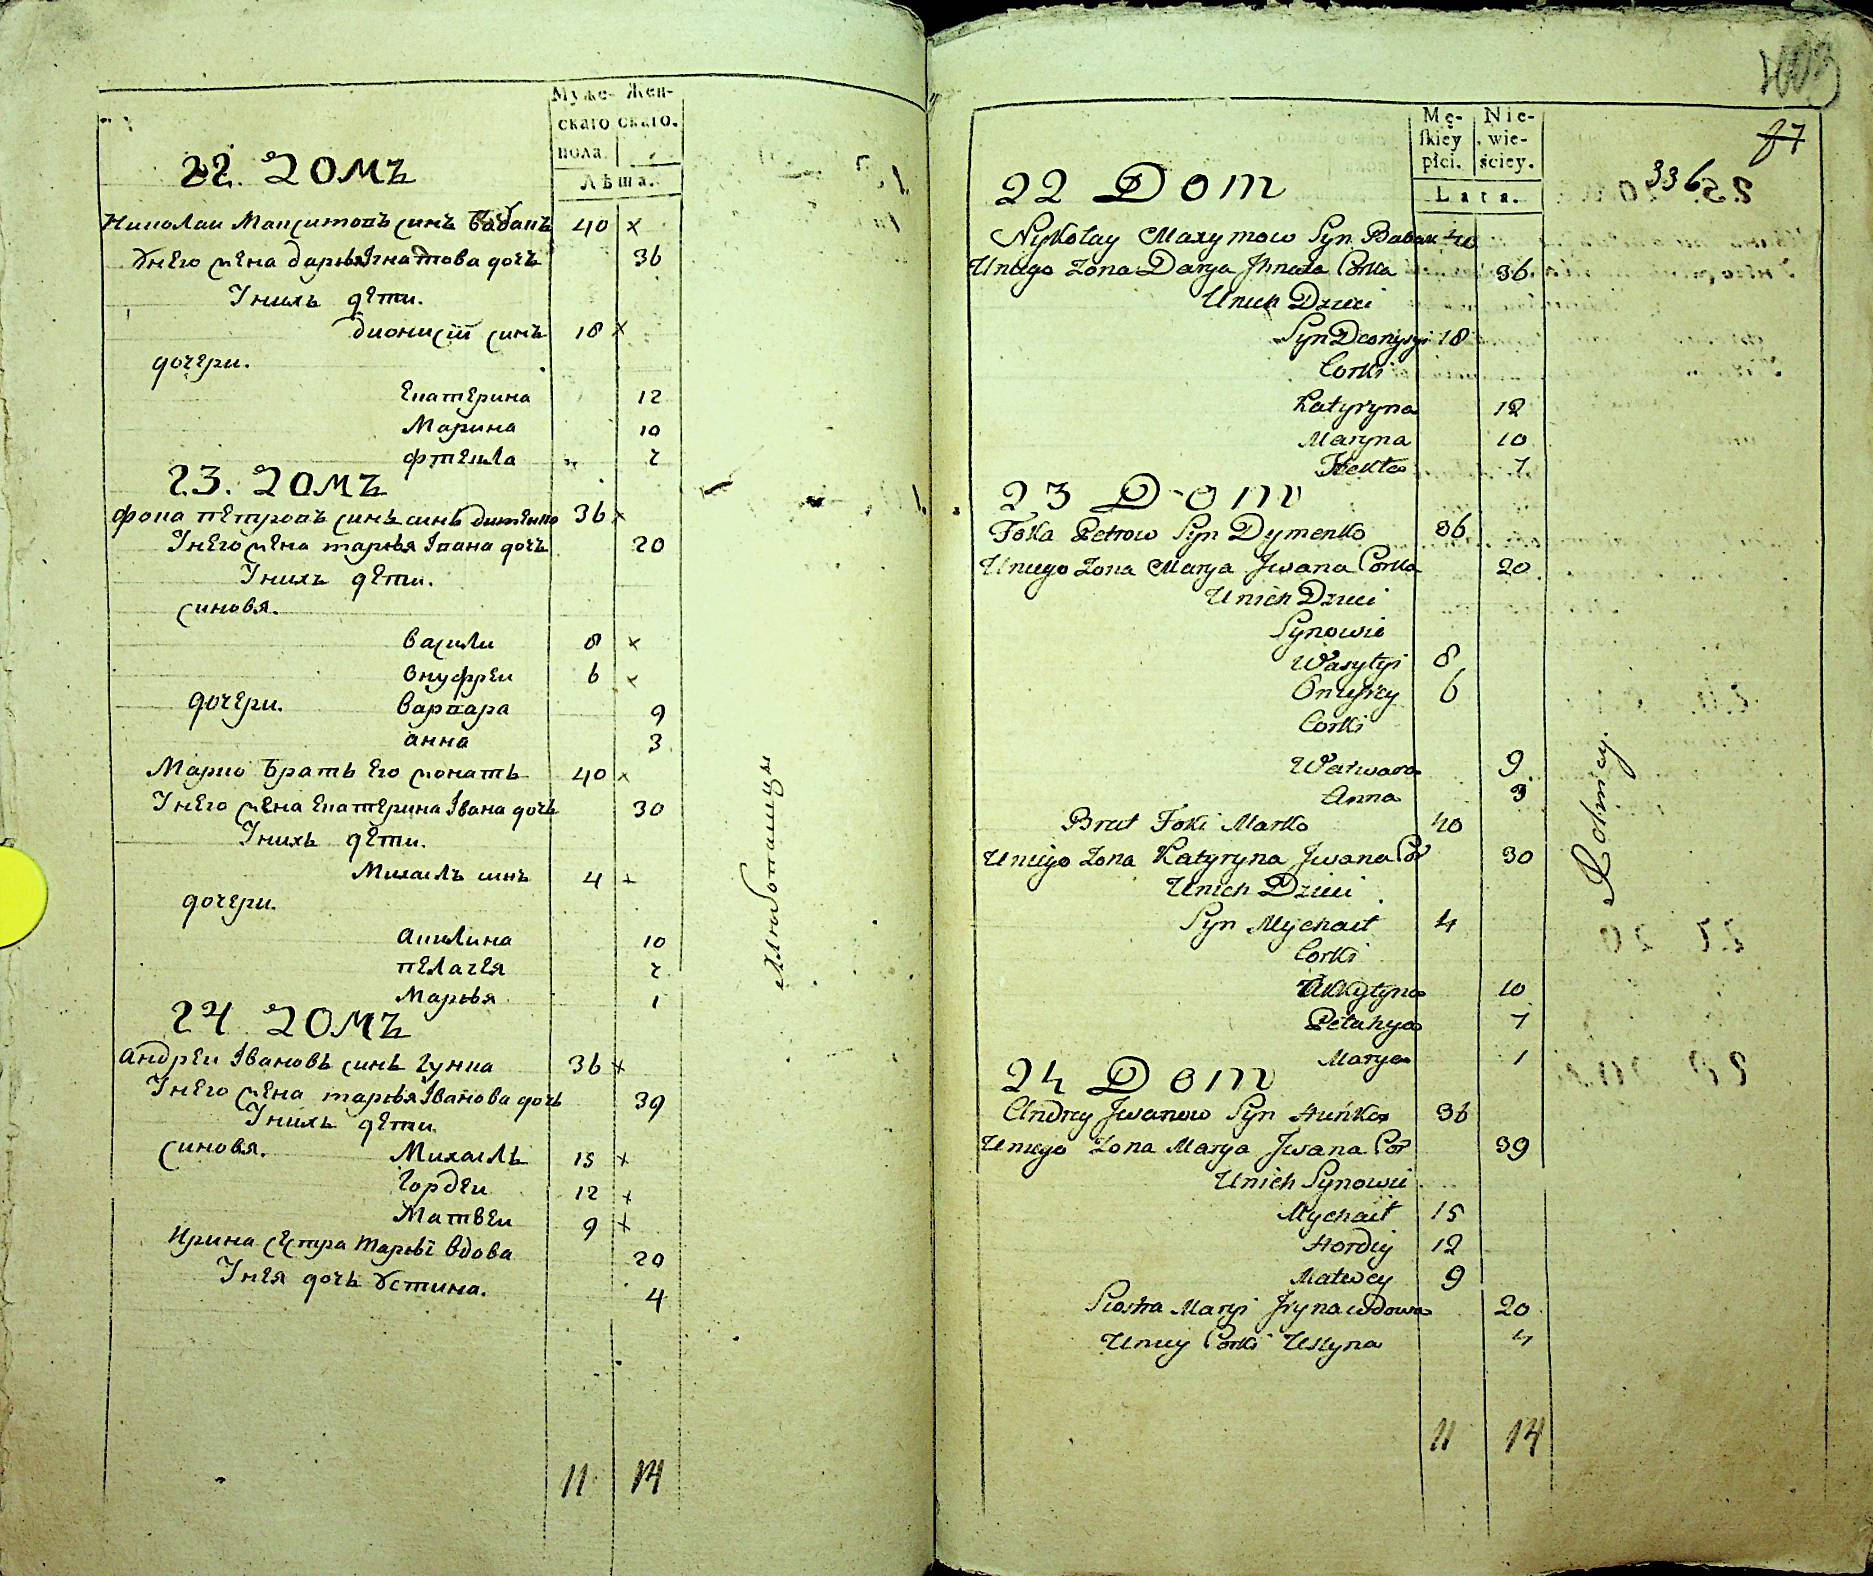 Муже- Жен-
скаго скаго.
пола.
Лѣта.
22. домъ
Николаи Максимовъ синъ Бабакъ 40 х
Унего жена дарья Игнатова дочъ 36
Унихъ дети.
дионисiй синъ 18 х
дочери.
Екатерина 12
Марина 10
Фтекла 7
23. домъ
Фока петровъ синъ дименко 36 х
Унего жена марья Iвана дочъ 20
Унихъ дети.
синовя.
Васили 8 х
Внуфреи 6 х
дочери. Варвара 9
анна 3
Марко Братъ Его женатъ 40 х
Унего жена Екатерина Iвана дочъ 30
Унихъ дети.
Михаилъ синъ 4 х
дочери.
Акилина 10
пелагея 7
Марья 1
24 домъ
Андреи Iвановъ синъ Гунка 36 х
Унего жена марья Iванова дочъ 39
Унихъ дети
синовя. Михаилъ 15 х
Гордеи 12 х
Матвеи 9 х
Ирина сестра марьї вдова 20
Унея дочъ Устина. 4
11 14
Хлиботашцы
1003
87
336
Mę- Nie-
skiey wie-
płci. ściey.
Lata.
22 Dom
Nykołay Maxymow Syn Babak 40
Uniego Zona Darya Jhnata Corka 36
Unich Dzieci
Syn Deonyzyi 18
Corki
Katyryna 12
Maryna 10
Tekla 7
23 Dom
Foka Petrow Syn Dymenko 36
Uniego Zona Marya Jwana Corka 20
Unich Dzieci
Synowie
Wasylyi 8
Onufrey 6
Corki
Warwara 9
Anna 3
Brat Foki Marko 40
Uniego Zona Katyryna Jwana Cor 30
Unich Dzieci
Syn Mychaił 4
Corki
Akkylyna 10
Pelahya 7
Marya 1
24 Dom
Andrey Jwanow Syn Huńka 36
Uniego Zona Marya Jwana Cor 39
Unich Synowie
Mychaił 15
Hordiy 12
Matwey 9
Siostra Maryi Jryna wdowa 20
Uniey Corki Ustyna 4
11 14
Rolnicy.